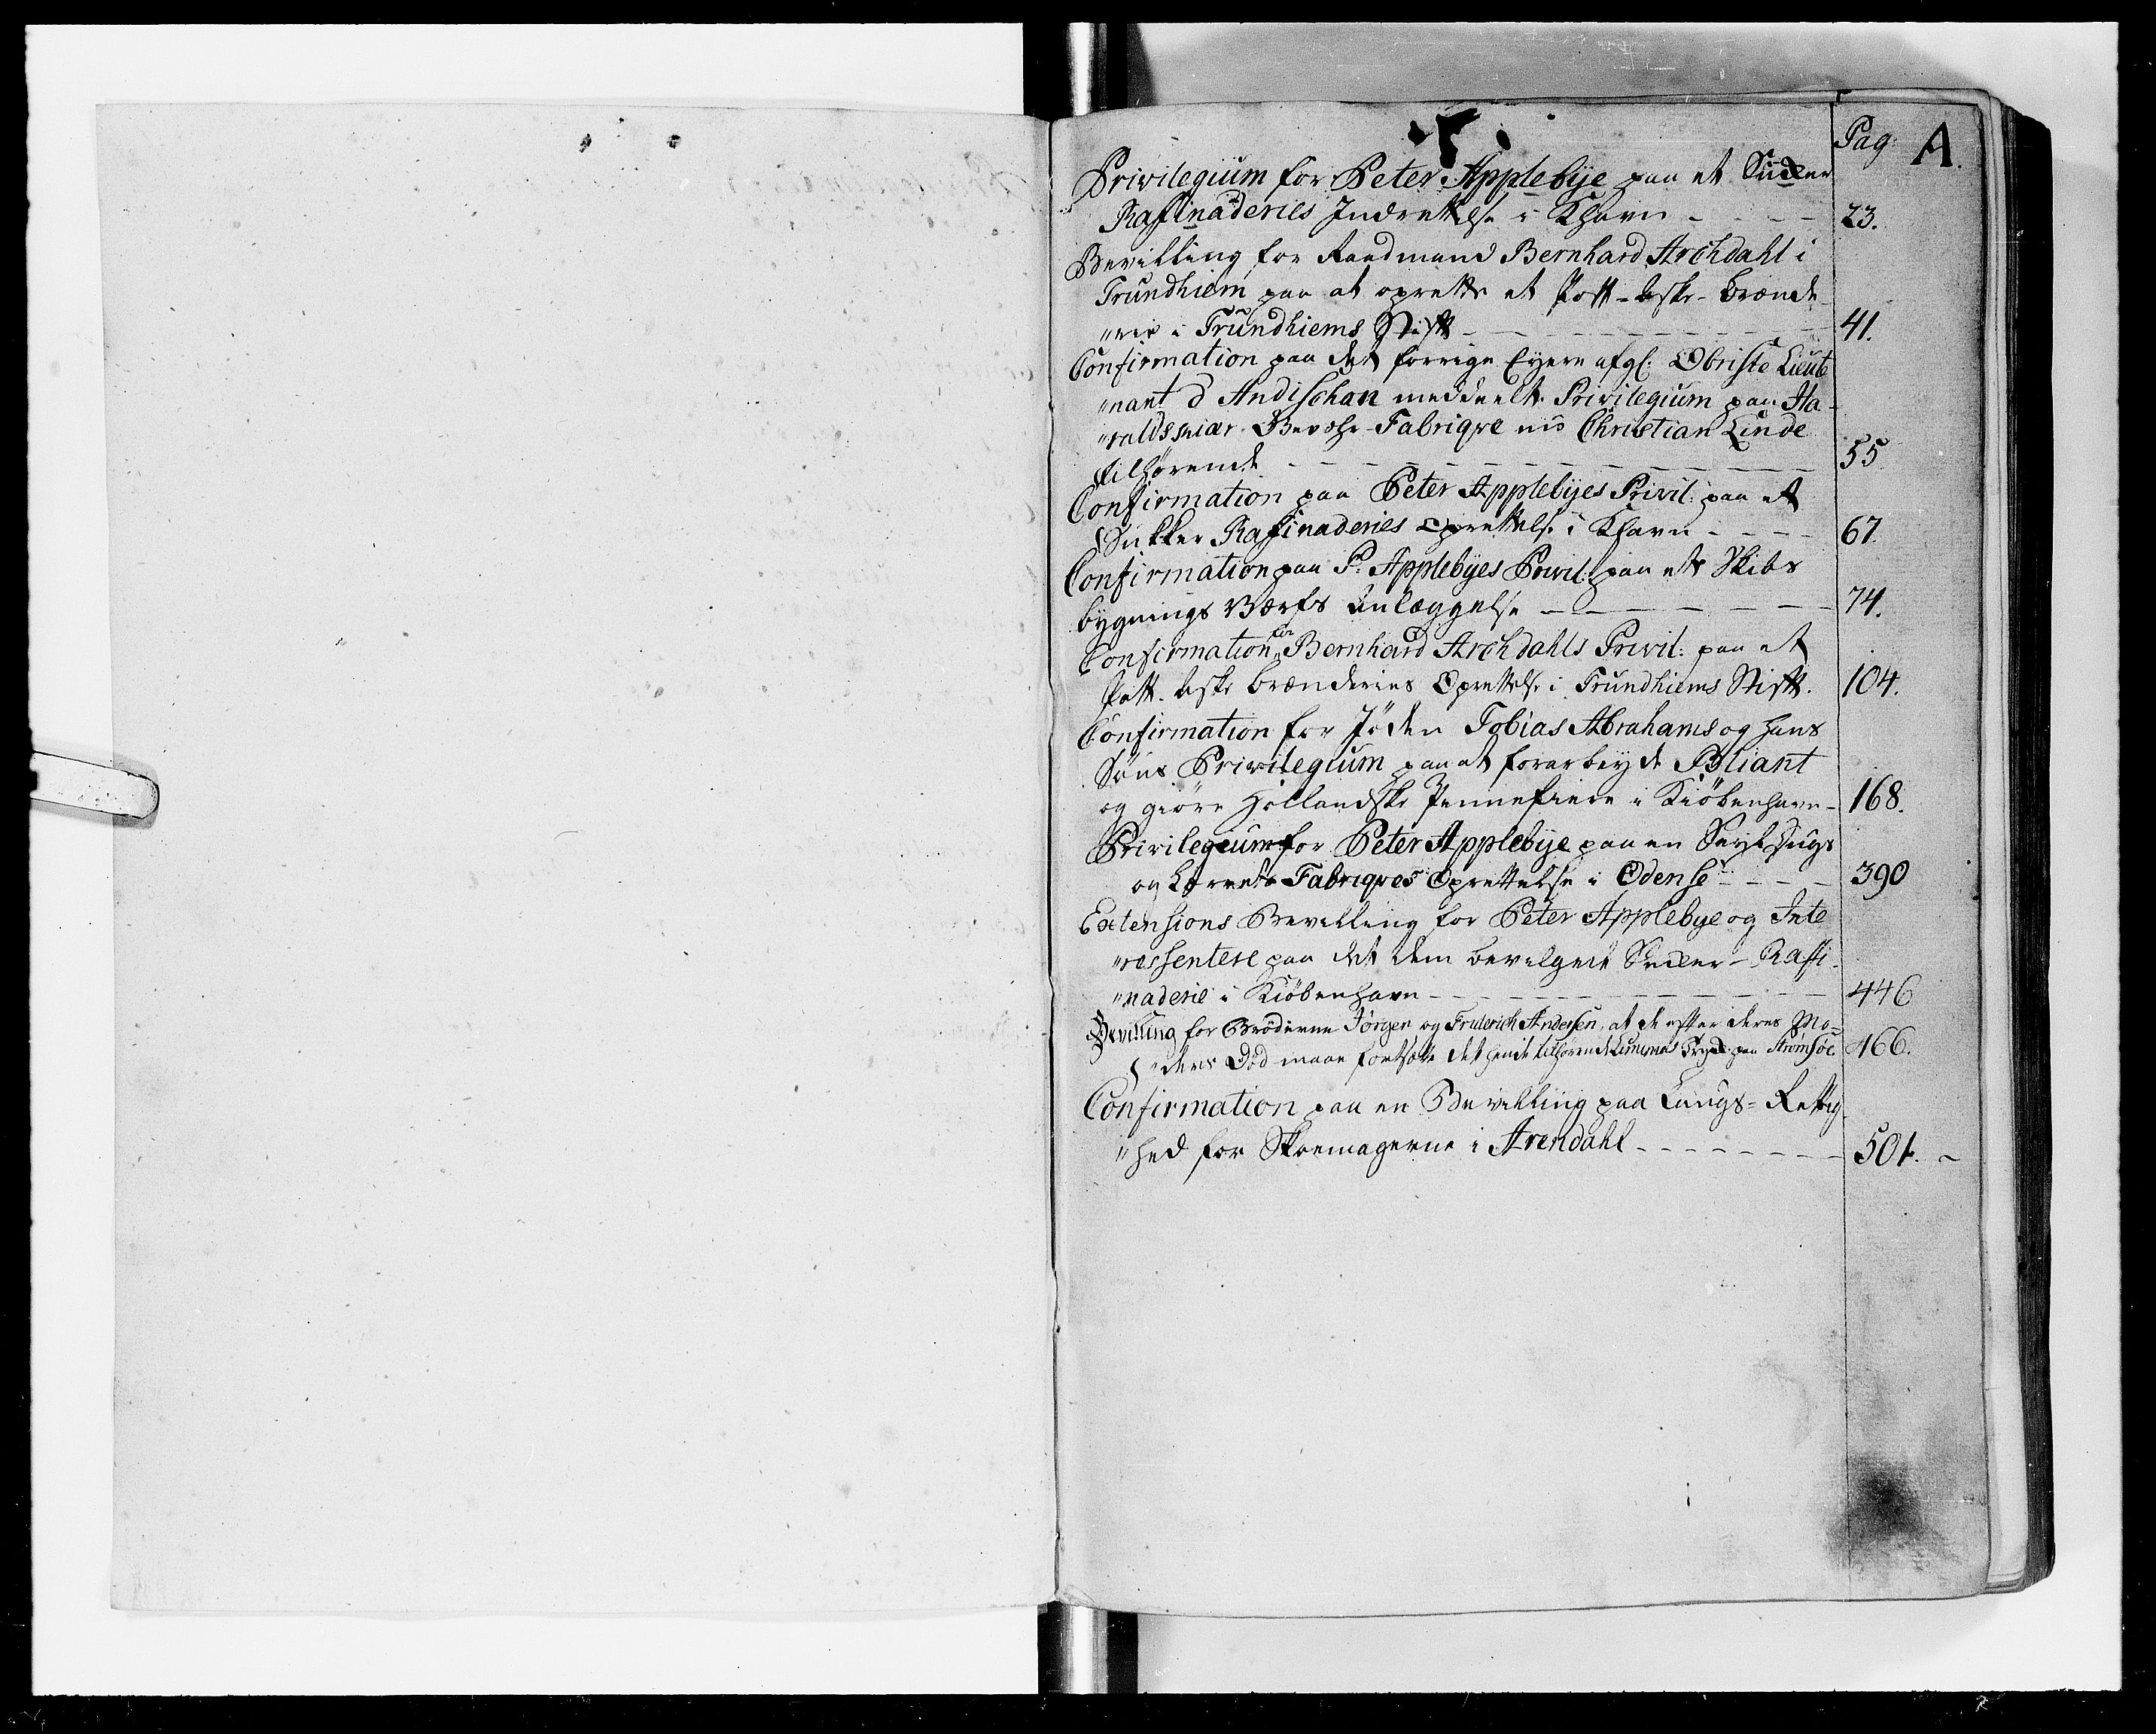 Pag: A.
Privilegium for Peter Applebÿe paa et Sucker
Rafinaderies Indrettelse i Khavn - - - - 23.
Bevilling for Raadmand Bernhard Archdahl i
Trundhiem paa at oprette et Pott-Aske-Brænde
"rie i Trundhiems Stift - - - - 41.
Confirmation paa det forrige Eyere afgl: Obriste Lieute
"nant d'Andischan meddeelte Privilegium paa Ha-
"raldskiær Gevehr-Fabriqve nu Christian Linde
tilhørende - - - - 55
Confirmation paa Peter Applebÿes Privil: paa et
Sukker Rafinaderies Oprettelse i Khavn - - - - 67.
Confirmation paa P. Applebÿes Privil: paa et Skibs
bygnings Værfs Anlæggelse - - - - 74.
Confirmation for Bernhard Archdahls Privil: paa et
Pott-Aske Brænderies Oprettelse i Trundhiems Stift. 104.
Confirmation for Jøden Tobias Abrahams og hans
Søns Privilegium paa at forarbeyde Bliant
og giøre Hollandske Pennefiere i Kiøbenhavn - 168.
Privilegium for Peter Applebÿe paa en Seyldugs
og Lerreds Fabriqves Oprettelse i Odense - - - - 390
Extensions Bevilling for Peter Applebye og Inte
"ressentere paa det dem bevilgede Sucker-Raffi-
"naderie i Kiøbenhavn - - - - 446
Bevilling for Brøderne Jørgen og Friderich Andersen, at de efter deres Mo-
"ders Død maae fortsætte det hende tilhørende paa Strømsøe 466.
Confirmation paa en Bevilling paa Laugs-Rettig
"hed for Skoemagerne i Arendahl - - - - 501. -